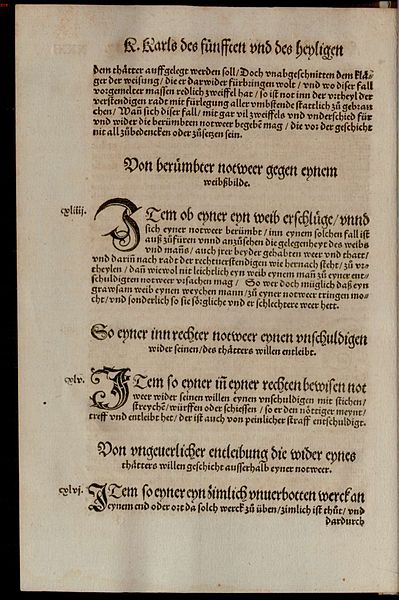 K. Karls des fünfften vnd des heyligen
dem thätter auffgelegt werden soll / Doch vnabgeschnitten dem klä-
ger der weisung / die er darwider fürbringen wolt / vnd wo diser fall
vorgemelter massen redlich zweiffel hat / so ist not inn der vrtheyl der
verstendigen radt mit fürlegung aller vmbstende stattlich zů gebrau
chen / Wañ sich diser fall / mit gar vil zweiffels vnd vnderschied für
vnd wider die berümbten notweer begebẽ mag / die vor der geschicht
nit all zůbedencken oder zůsetzen sein.
Von berümbter notweer gegen eynem
weibßbilde.
cxliiij.
ITem ob eyner eyn weib erschlüge / vnnd
sich eyner notweer berümbt / inn eynem solchen fall ist
auß zůfüren vnnd anzůsehen die gelegenheyt des weibs
vnd mañs / auch jrer beyder gehabten weer vnd thatt /
vnd darin̄ nach radt der rechtuerstendigen wie hernach steht / zů vr-
theylen / dañ wiewol nit leichtlich eyn weib eynem mañ zů eyner ent-
schuldigten notweer vrsachen mag / So wer doch müglich daß eyn
grawsam weib eynen weychen mann / zů eyner notweer tringen mo-
cht / vnd sonderlich so sie sörgliche vnd er schlechtere weer hett.
So eyner inn rechter notweer eynen vnschuldigen
wider seinen / des thätters willen entleibt.
cxlv.
ITem so eyner in̄ eyner rechten bewisen not
weer wider seinen willen eynen vnschuldigen mit stichen /
streychẽ / würffen oder schiessen / so er den nöttiger meynt /
treff vnd entleibt het / der ist auch von peinlicher straff entschuldigt.
Von vngeuerlicher entleibung die wider eynes
thätters willen geschicht ausserhalb eyner notweer.
cxlvj.
ITem so eyner eyn zimlich vnuerbotten werck an
eynem end oder ort da solch werck zů üben / zimlich ist thůt / vnd
dardurch